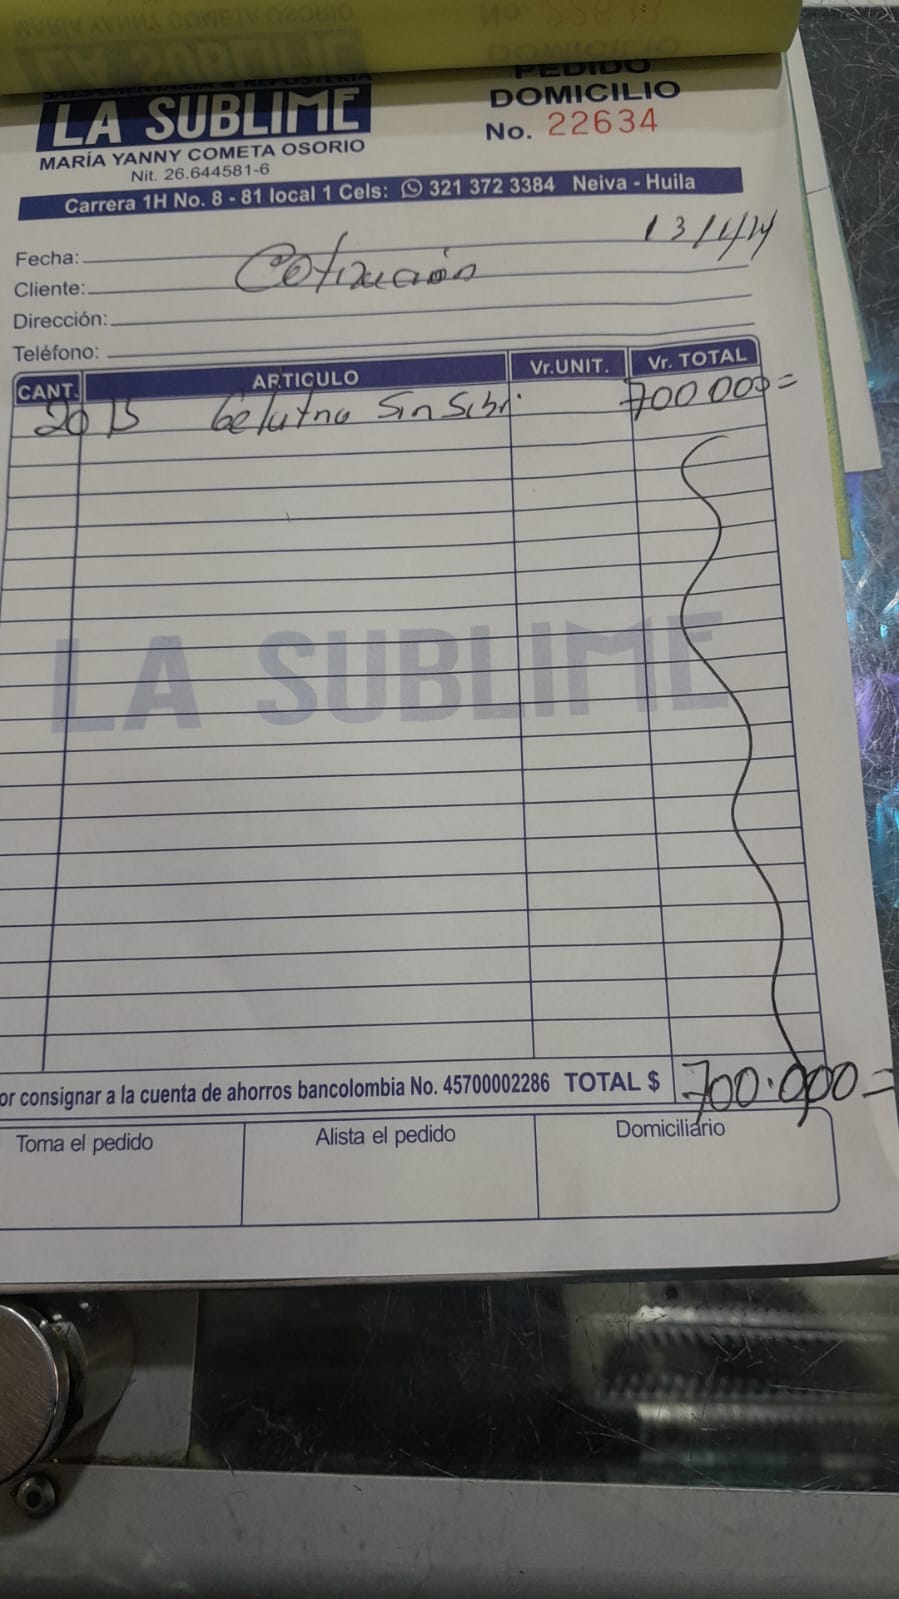 LA SUBLIME
MARÍA YANNY COMETA OSORIO
Nit. 26.644581-6
PEDIDO
DOMICILIO
No. 22634
Carrera 1H No. 8 - 81 local 1 Cels: 321 372 3384 Neiva - Huila
Fecha:
Cliente: Cotización
Dirección:
Teléfono:
CANT. ARTICULO Vr.UNIT. Vr. TOTAL
20 Gelatina Sin Sabr. 700 000=
LA SUBLIME
or consignar a la cuenta de ahorros bancolombia No. 45700002286 TOTAL $ 700.000=
Toma el pedido Alista el pedido Domiciliario